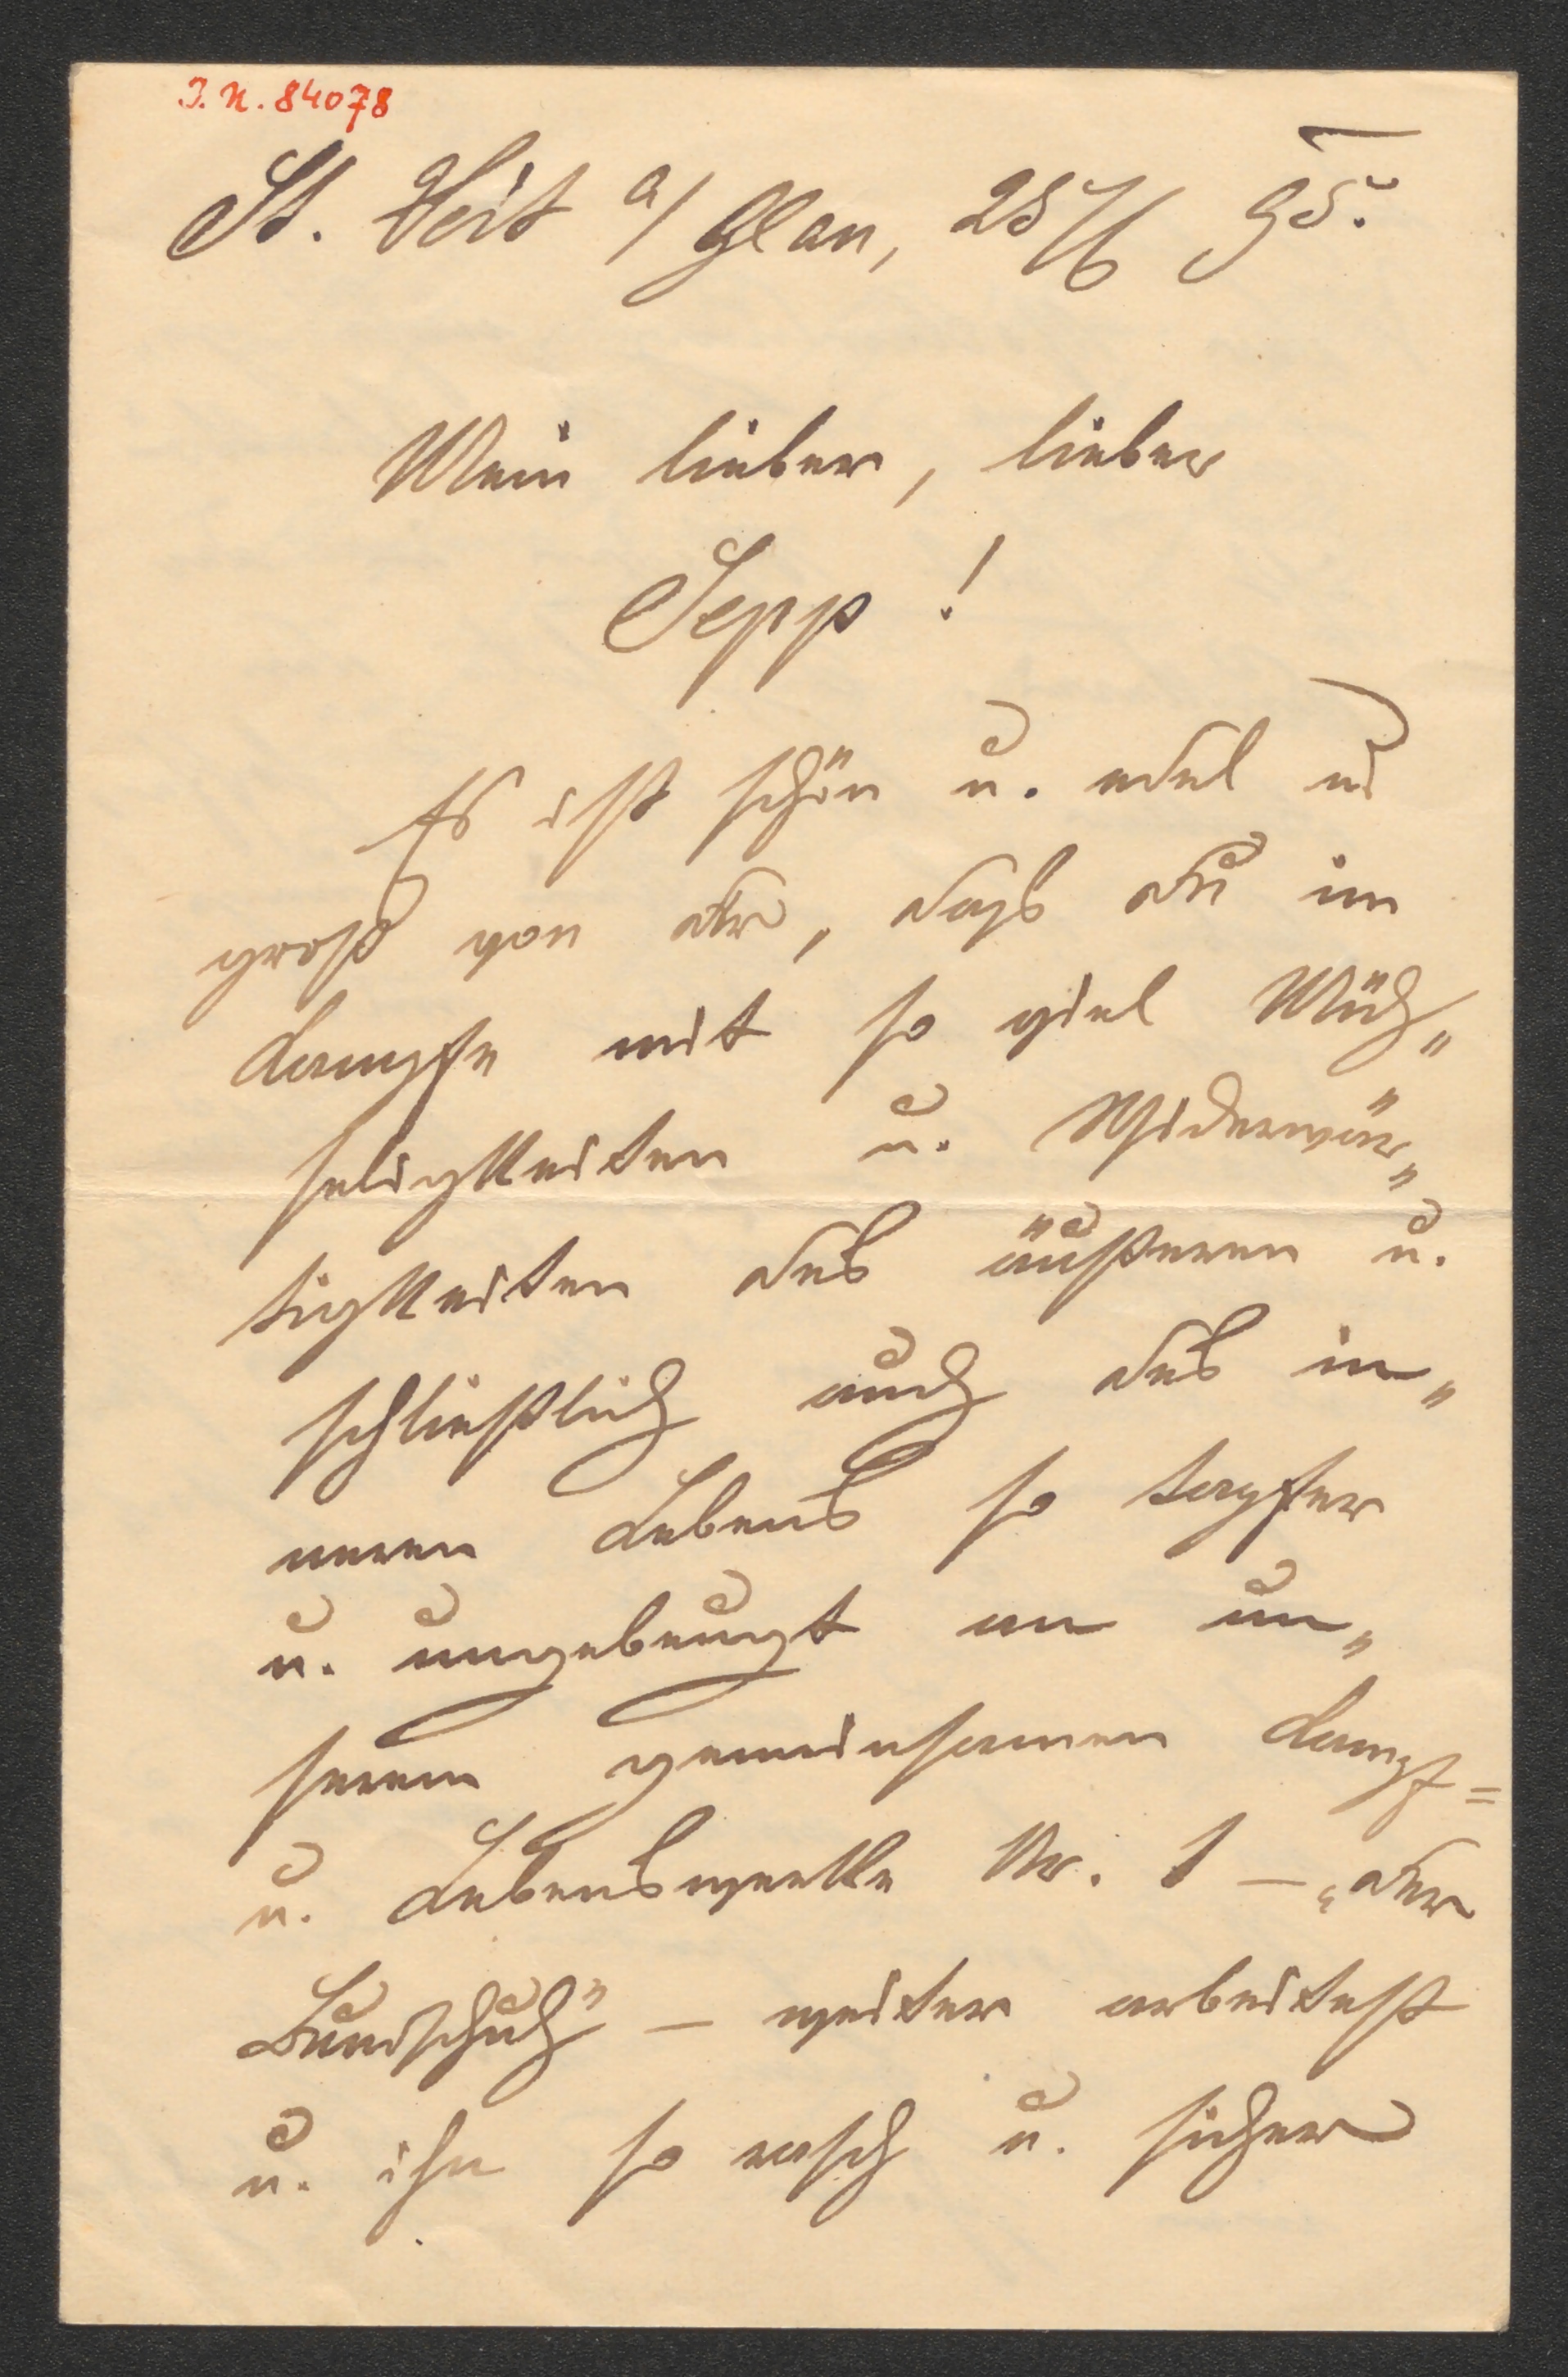 I.N. 84078
St. Veit a/ Glan, 25/6 95.
Mein lieber, lieber
Sepp!
Es ist schön u. edel u
groß von dir, dass du im
Kampfe mit so viel Müh„
seligkeiten u. Widerwär„
tigkeiten des äußeren u.
schließlich auch des in„
neren Lebens so tapfer
u. ungebeugt an un„
serem gemeinsamen Kampf=
u. Lebenswerke Nr. 1 – „der
Bundschuh" – weiter arbeitest
u. ihn so rasch u. sicher